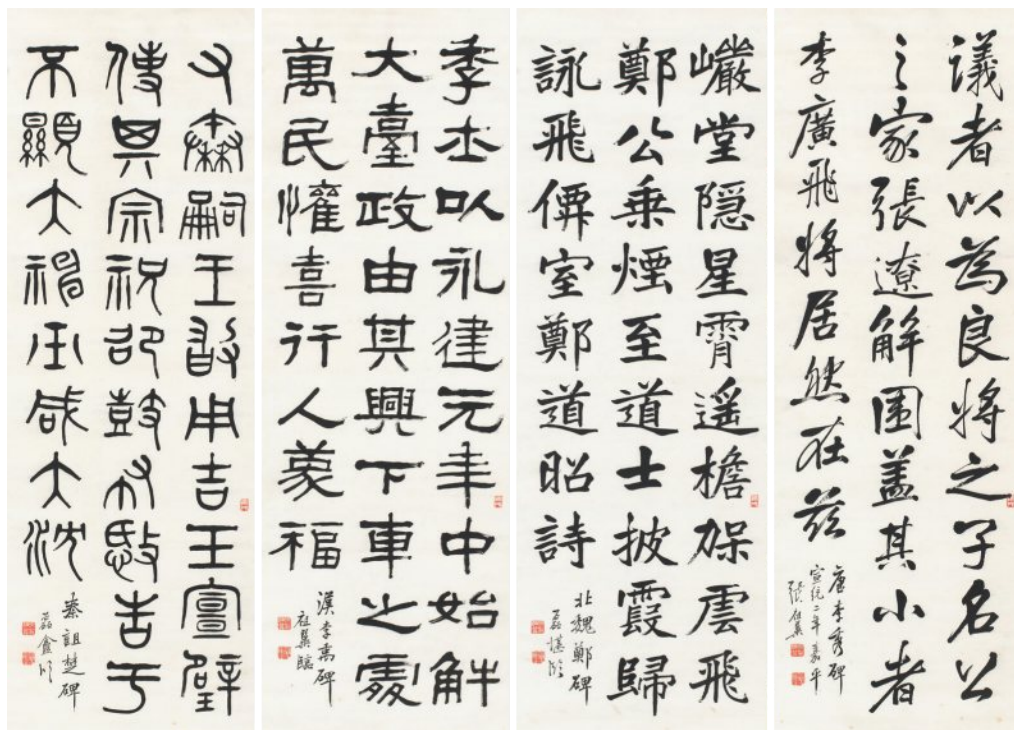 議者以為良將之子名公
之家張遼解圍盖其小者
李廣飛將居然在茲
唐李秀碑
宣統二年嘉平
張祖翼
巗堂隱星霄遙檐架雲飛
鄭公乘煙至道士披霞歸
詠飛僊室鄭道昭詩
北魏鄭碑
磊堪臨
季士以永建元年中始解
大臺政由其興下車之處
萬民懽喜行人蒙福
漢李禹碑
祖翼臨
又秦嗣王敢用吉玉宣璧
使其宗祝邵鼓布憝告于
不顯大神巫咸大沈
秦詛楚碑
磊盦臨